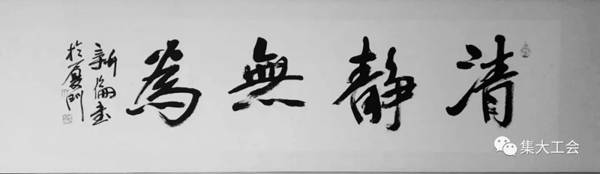 清靜無為
新倫書
於厦門
集大工会